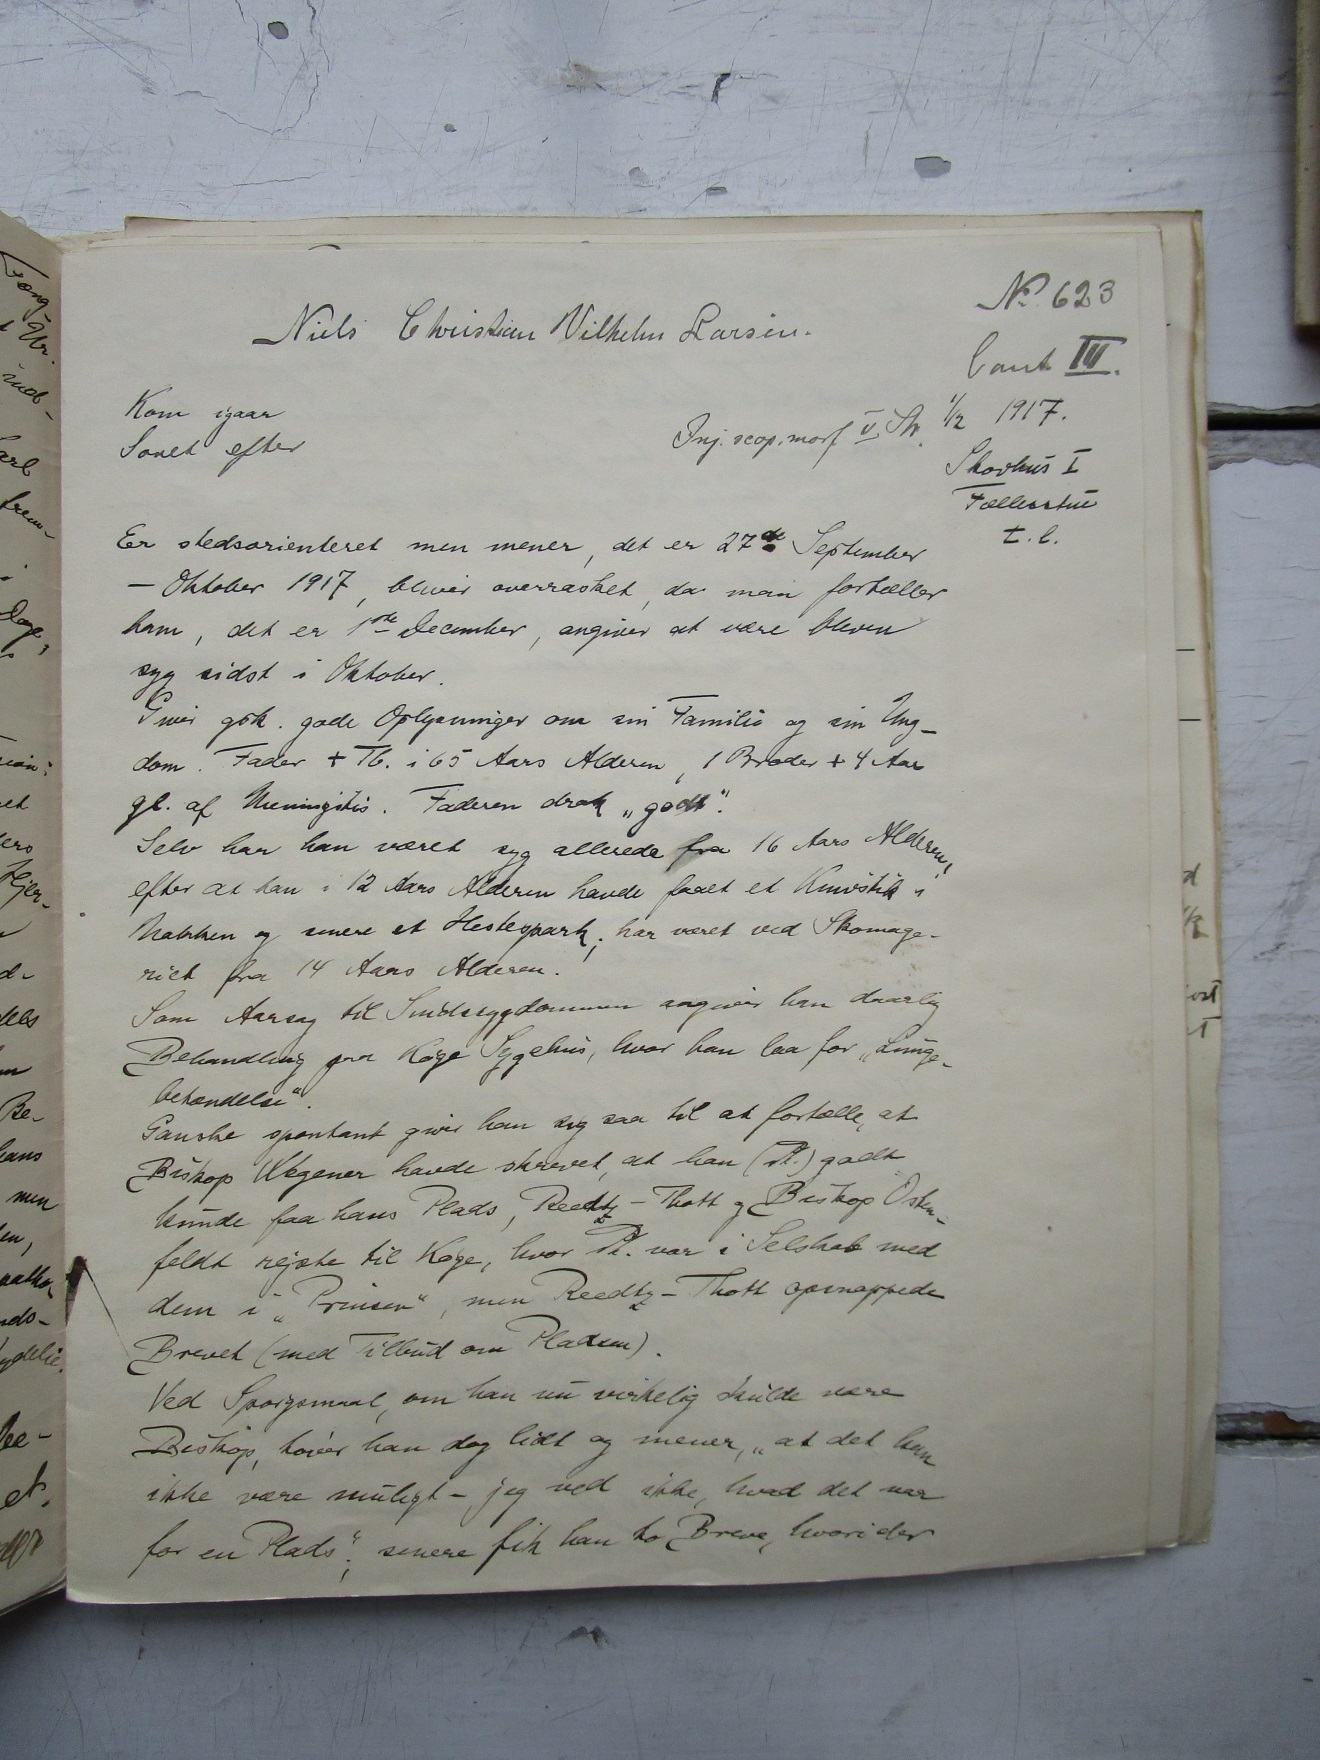 No 623
Niels Christian Vilhelm Larsen.
Cont III.
Kom igaar
Sovet efter
Inj. scop. morf. II Str. 1/12 1917.
Skovhus I
Fællesstue
t. l.
Er stedsorienteret men mener, det er 27de September
— Oktober 1917, bliver overrasket, da man fortæller
ham, det er 1ste December, angiver at være bleven
syg sidst i Oktober.
Giver gsk. gode Oplysninger om sin Familie og sin Ung-
dom. Fader + Tb. i 65 Aars Alderen, 1 Broder + 4 Aar
gl. af Meningitis. Faderen drak „godt“.
Selv har han været syg allerede fra 16 Aars Alderen,
efter at han i 12 Aars Alderen havde faaet et Knivstik i
Nakken og senere et Hestespark; har været ved Skomage-
riet fra 14 Aars Alderen.
Som Aarsag til Sindssygdommen angiver han daarlig
Behandling paa Køge Sygehus, hvor han laa for „Lunge-
betændelse“.
Ganske spontant giver han sig saa til at fortælle, at
Biskop Wegener havde skrevet, at han (Pt.) godt
kunde faa hans Plads, Reedtz-Thott og Biskop Osten-
feldt rejste til Køge, hvor Pt. var i Selskab med
dem i „Prinsen“, men Reedtz-Thott opsnappede
Brevet (med Tilbud om Pladsen).
Ved Spørgsmaal, om han nu virkelig skulde være
Biskop, tøver han dog lidt og mener, „at det kan
ikke være muligt - jeg ved ikke, hvad det var
for en Plads“; senere fik han to Breve, hvori der